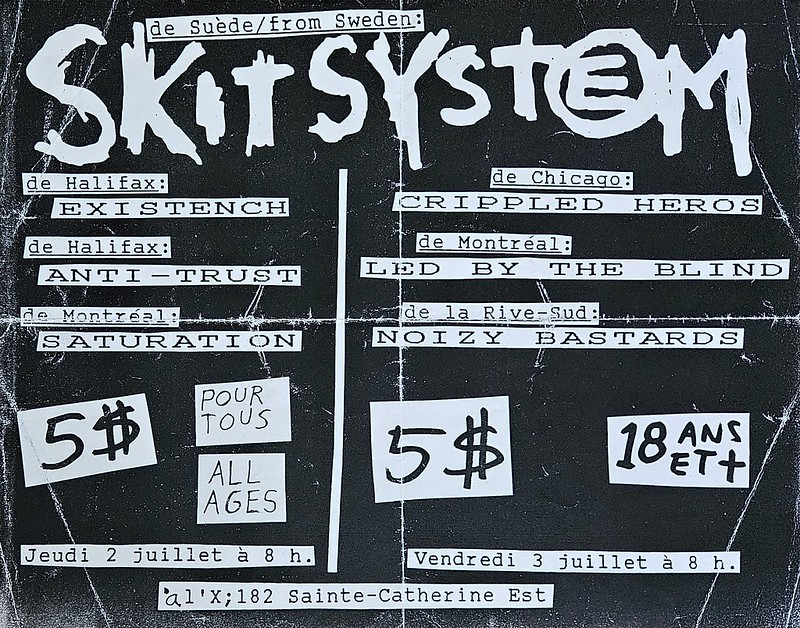 de Suède/from Sweden:
SKiTSYSTEM
de Halifax:
EXISTENCH
de Halifax:
ANTI-TRUST
de Montréal:
SATURATION
5$
POUR
TOUS
ALL
AGES
Jeudi 2 juillet à 8 h.
de Chicago:
CRIPPLED HEROS
de Montréal:
LED BY THE BLIND
de la Rive-Sud:
NOIZY BASTARDS
5$
18 ANS
ET +
Vendredi 3 juillet à 8 h.
àl'X;182 Sainte-Catherine Est